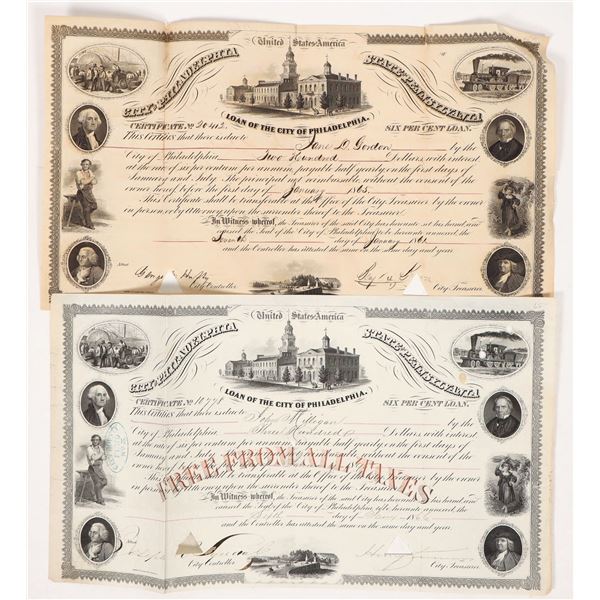 United States America
CITY PHILADELPHIA
STATE PENNSYLVANIA
LOAN OF THE CITY OF PHILADELPHIA.
CERTIFICATE No 20412.
SIX PER CENT LOAN.
This Certifies that there is due to Jane D. Gordon by the
City of Philadelphia, Two Hundred Dollars with interest
at the rate of six per centum per annum, payable half yearly on the first days of
January and July. The principal not reimbursable without the consent of the
owner hereof before the first day of January 1865.
This Certificate shall be transferable at the Office of the City Treasurer by the owner
in person, or by Attorney upon the surrender hereof to the Treasurer.
In Witness whereof, the Treasurer of the said City has hereunto set his hand, and
caused the Seal of the City of Philadelphia to be hereunto annexed, the
day of January 1861
and the Controller has attested the same on the same day and year.
Attest
City Controller
City Treasurer
United States America
CITY PHILADELPHIA
STATE PENNSYLVANIA
LOAN OF THE CITY OF PHILADELPHIA.
CERTIFICATE No
SIX PER CENT LOAN.
This Certifies that there is due to John Milligan by the
City of Philadelphia, Three Hundred Dollars with interest
at the rate of six per centum per annum, payable half yearly on the first days of
January and July without the consent of the
owner hereof before the first day of
This Certificate shall be transferable at the Office of the City Treasurer by the owner
in person, or by Attorney upon the surrender hereof to the Treasurer.
FREE FROM ALL TAXES
In Witness whereof, the Treasurer of the said City has hereunto set his hand, and
caused the Seal of the City of Philadelphia to be hereunto annexed, the
day of
and the Controller has attested the same on the same day and year.
Attest
City Controller
City Treasurer